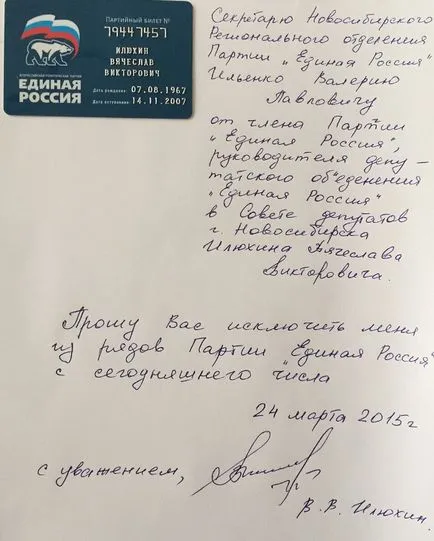 ПАРТИЙНЫЙ БИЛЕТ №
79447457
ИЛЮХИН
ВЯЧЕСЛАВ
ВИКТОРОВИЧ
ВСЕРОССИЙСКАЯ ПОЛИТИЧЕСКАЯ ПАРТИЯ
ЕДИНАЯ
РОССИЯ
Дата рождения: 07.08.1967
Дата вступления: 14.11.2007
Секретарю Новосибирского
Регионального отделения
Партии „Единая Россия"
Ильенко Валерию
Павловичу
от члена Партии
„Единая Россия",
руководителя депу-
татского объеденения
„Единая Россия"
в Совете депутатов
г. Новосибирска
Илюхина Вячеслава
Викторовича.
Прошу Вас исключить меня
из рядов Партии „Единая Россия"
с сегодняшнего числа
24 марта 2015г
с уважением,
В.В. Илюхин.